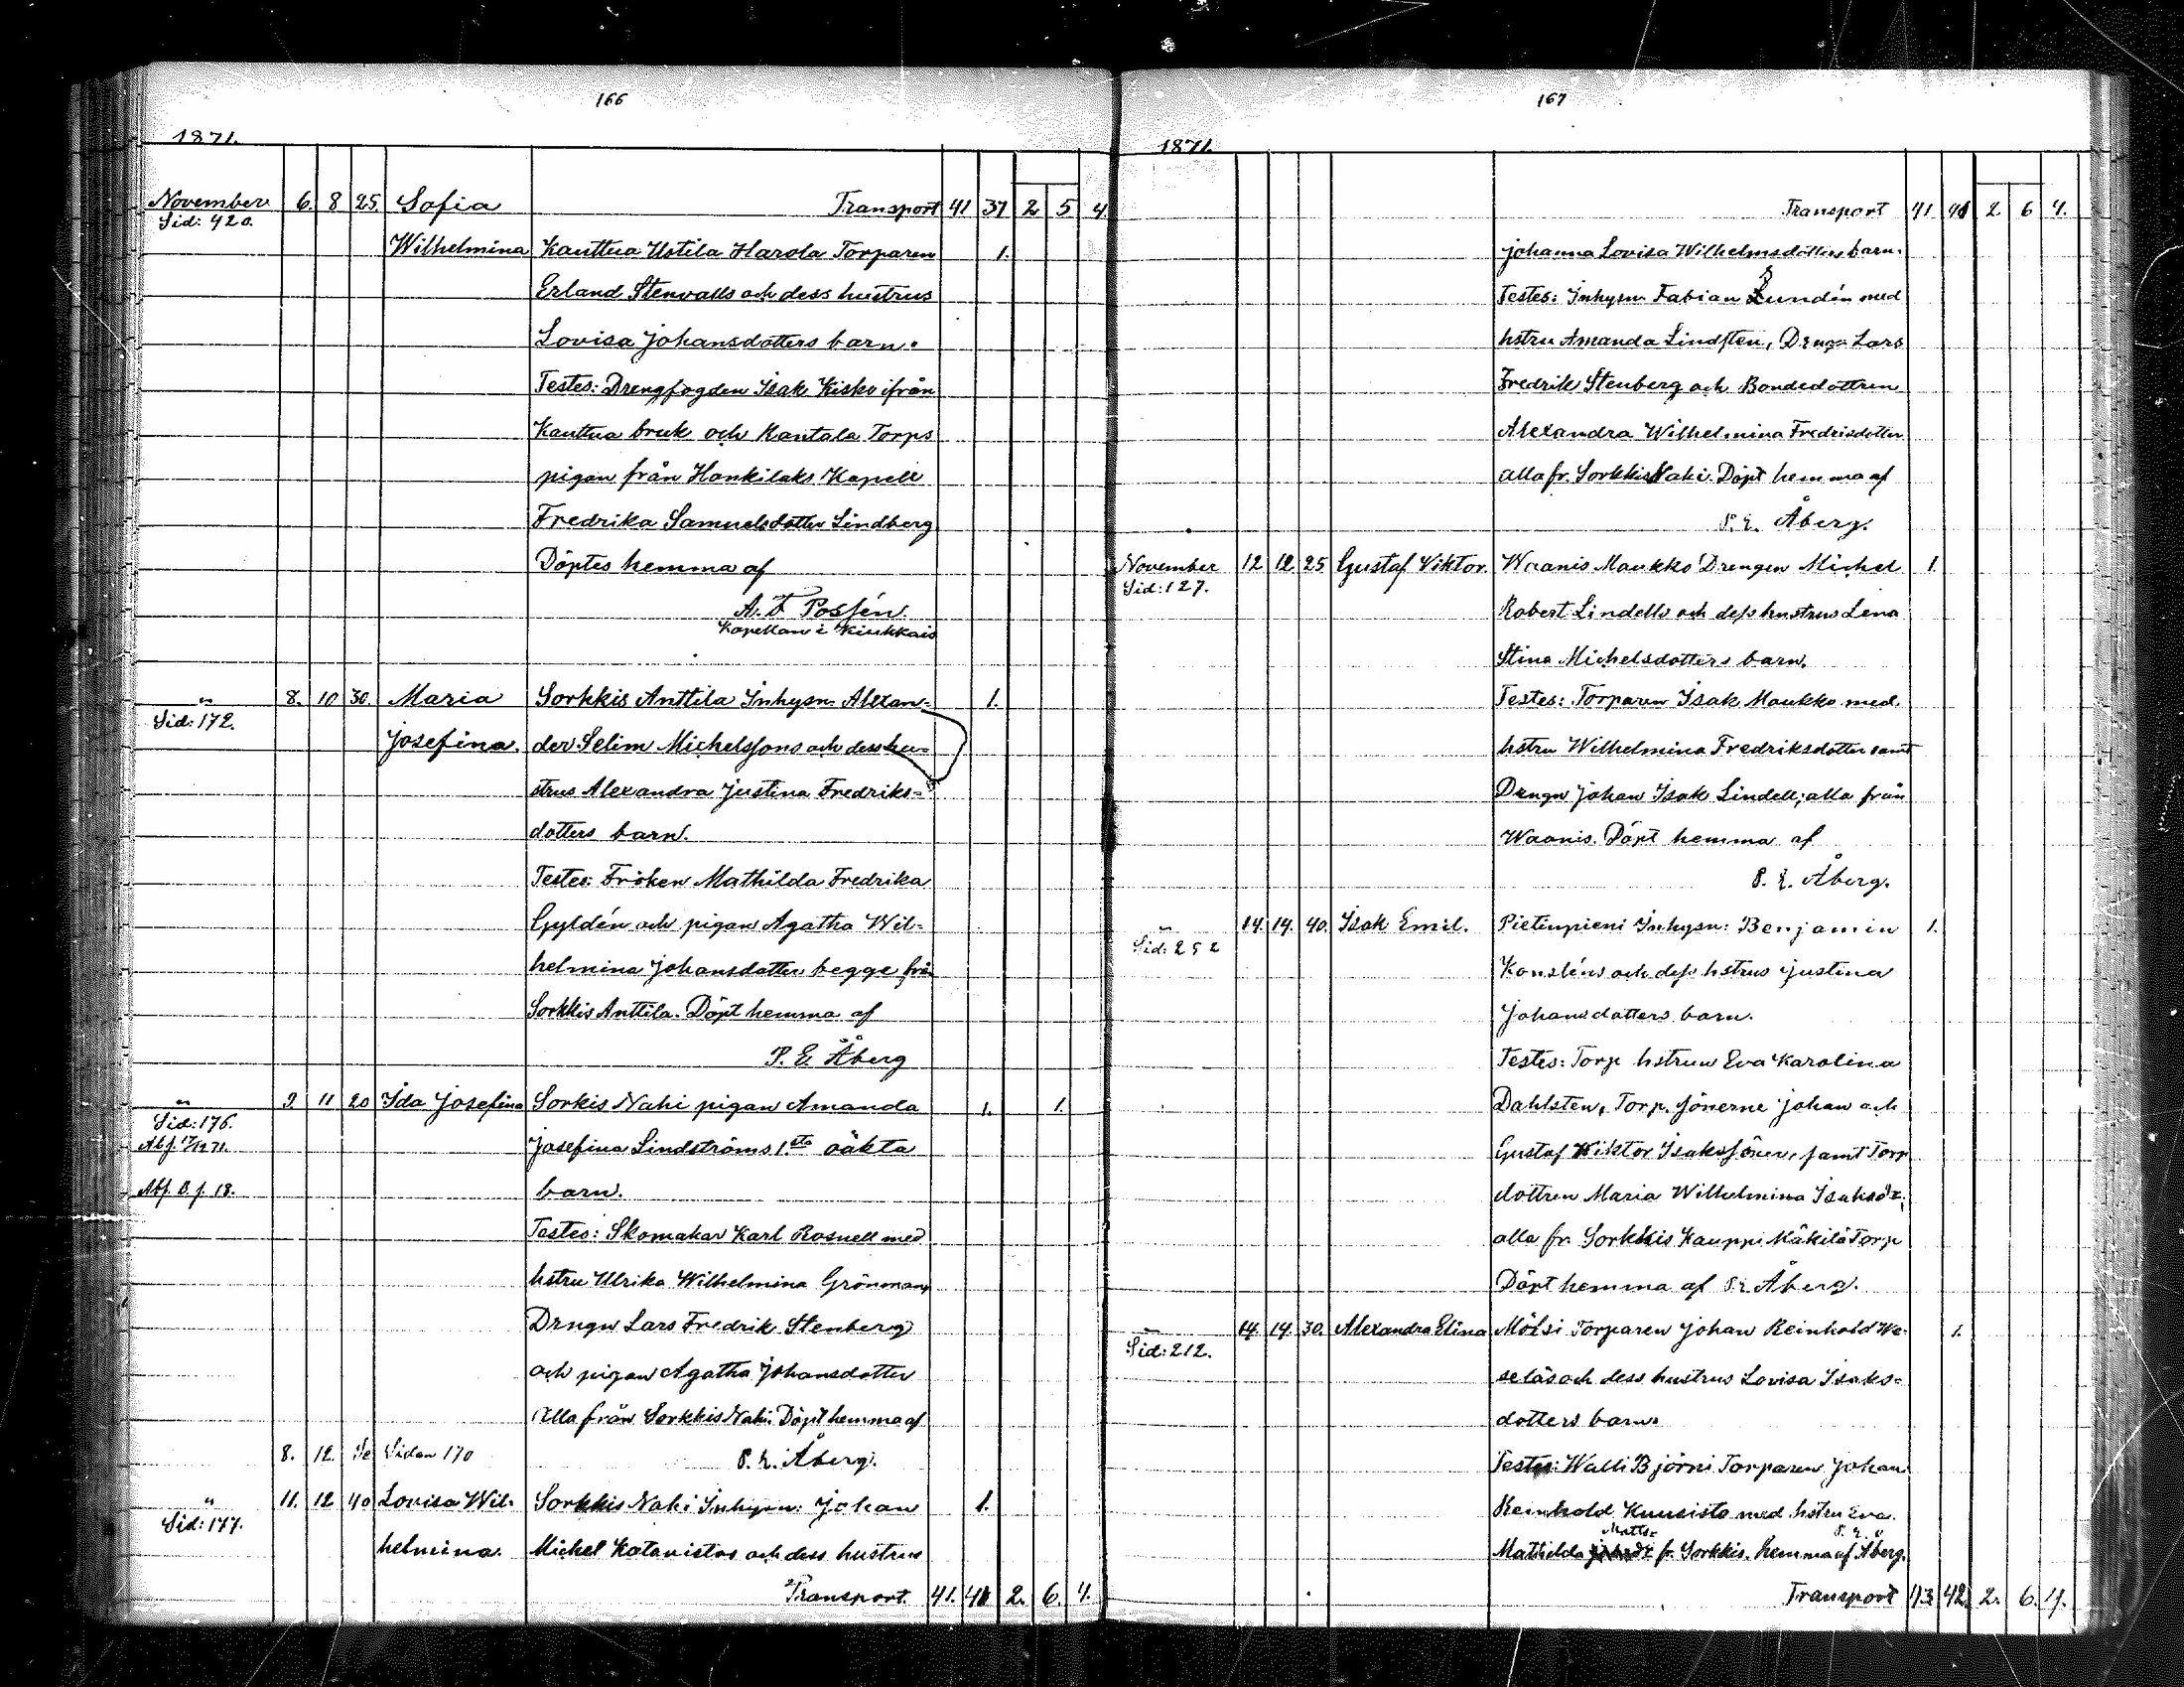 166
1871.
November 6. 8 25. Sofia Transport 41 37 2 5 4.
Sid: 420.
Wilhelmina Kauttua Ustila Harola Torparen 1.
Erland Stenvalls och dess hustrus
Lovisa Johansdotters barn.
Testes: Drengfogden Isak Kisko ifrån
Kauttua bruk och Kantala Torps
pigan från Honkilaks Kapell
Fredrika Samuelsdotter Lindberg
Döptes hemma af
A. F. Possén
Kapellan i Kiukkais
" 8. 10 30. Maria Sorkkis Anttila Inhysn. Alexan= 1.
Sid: 172.
Josefina. der Selim Michelssons och dess hu=
strus Alexandra Justina Fredriks=
dotters barn.
Testes: Fröken Mathilda Fredrika
Gyldén och pigan Agatha Wil=
helmina Johansdotter begge från
Sorkkis Anttila. Döpt hemma af
P. E. Åberg
" 9. 11 20 Ida Josefina Sorkis Nahi pigan Amanda 1. 1.
Sid: 176.
Josefina Lindströms 1.sta oäkta
Abf. B. f. 18. barn.
Testes: Skomakar Karl Rosnell med
hstru Ulrika Wilhelmina Grönman,
Drngn Lars Fredrik Stenberg
och pigan Agatha Johansdotter
Alla från Sorkkis Nahi. Döpt hemma af
8. 12. Se Sidan 170 P. E. Åberg.
" 11. 12 40 Lovisa Wil- Sorkkis Nahi Inhysn: Johan 1.
Sid: 177.
helmina. Michel Katavistos och dess hustrus
Transport. 41. 41 2. 6. 4.
167
1871.
Transport 41 41 2. 6 4.
Johanna Lovisa Wilhelmsdotters barn.
Testes: Inhysn Fabian Sundén med
hstru Amanda Lindsten, Dreng Lars
Fredrik Stenberg och Bondedottren
Alexandra Wilhelmina Fredriksdotter
alla fr. Sorkkis Nahi. Döpt hemma af
P. E. Åberg.
November 12 12 25 Gustaf Viktor. Waanis Maukko Drengen Michel 1.
Sid: 127.
Robert Lindells och dess hustrus Lena
Stina Michelsdotters barn.
Testes: Torparen Isak Maukko med
hstru Wilhelmina Fredriksdotter samt
Drngn Johan Isak Lindell; alla från
Waanis. Döpt hemma af
P. E. Åberg.
" 14. 14. 40. Isak Emil. Pietinpieni Inhysn: Benjamin 1.
Sid: 252
Konsténs och dess hstrus Justina
Johansdotters barn.
Testes: Torp hstrun Eva Karolina
Dahlsten, Torp. sönerne Johan och
Gustaf Wiktor Isakssöner, samt Torp
dottren Maria Wilhelmina Isaksdr.
alla fr. Sorkkis Kauppi Mäkilä Torp
Döpt hemma af P. E. Åberg.
" 14. 14. 30. Alexandra Elina Mölsi Torparen Johan Reinhold We- 1.
Sid: 212.
seläs och dess hustrus Lovisa Isaks=
dotters barn.
Testes: Walli Björni Torparen Johan
Reinhold Kuusisto med hstru Eva
Matts= P. E.
Mathilda fr. Sorkkis. hemma af Åberg.
Transport 43 42. 2. 6. 4.